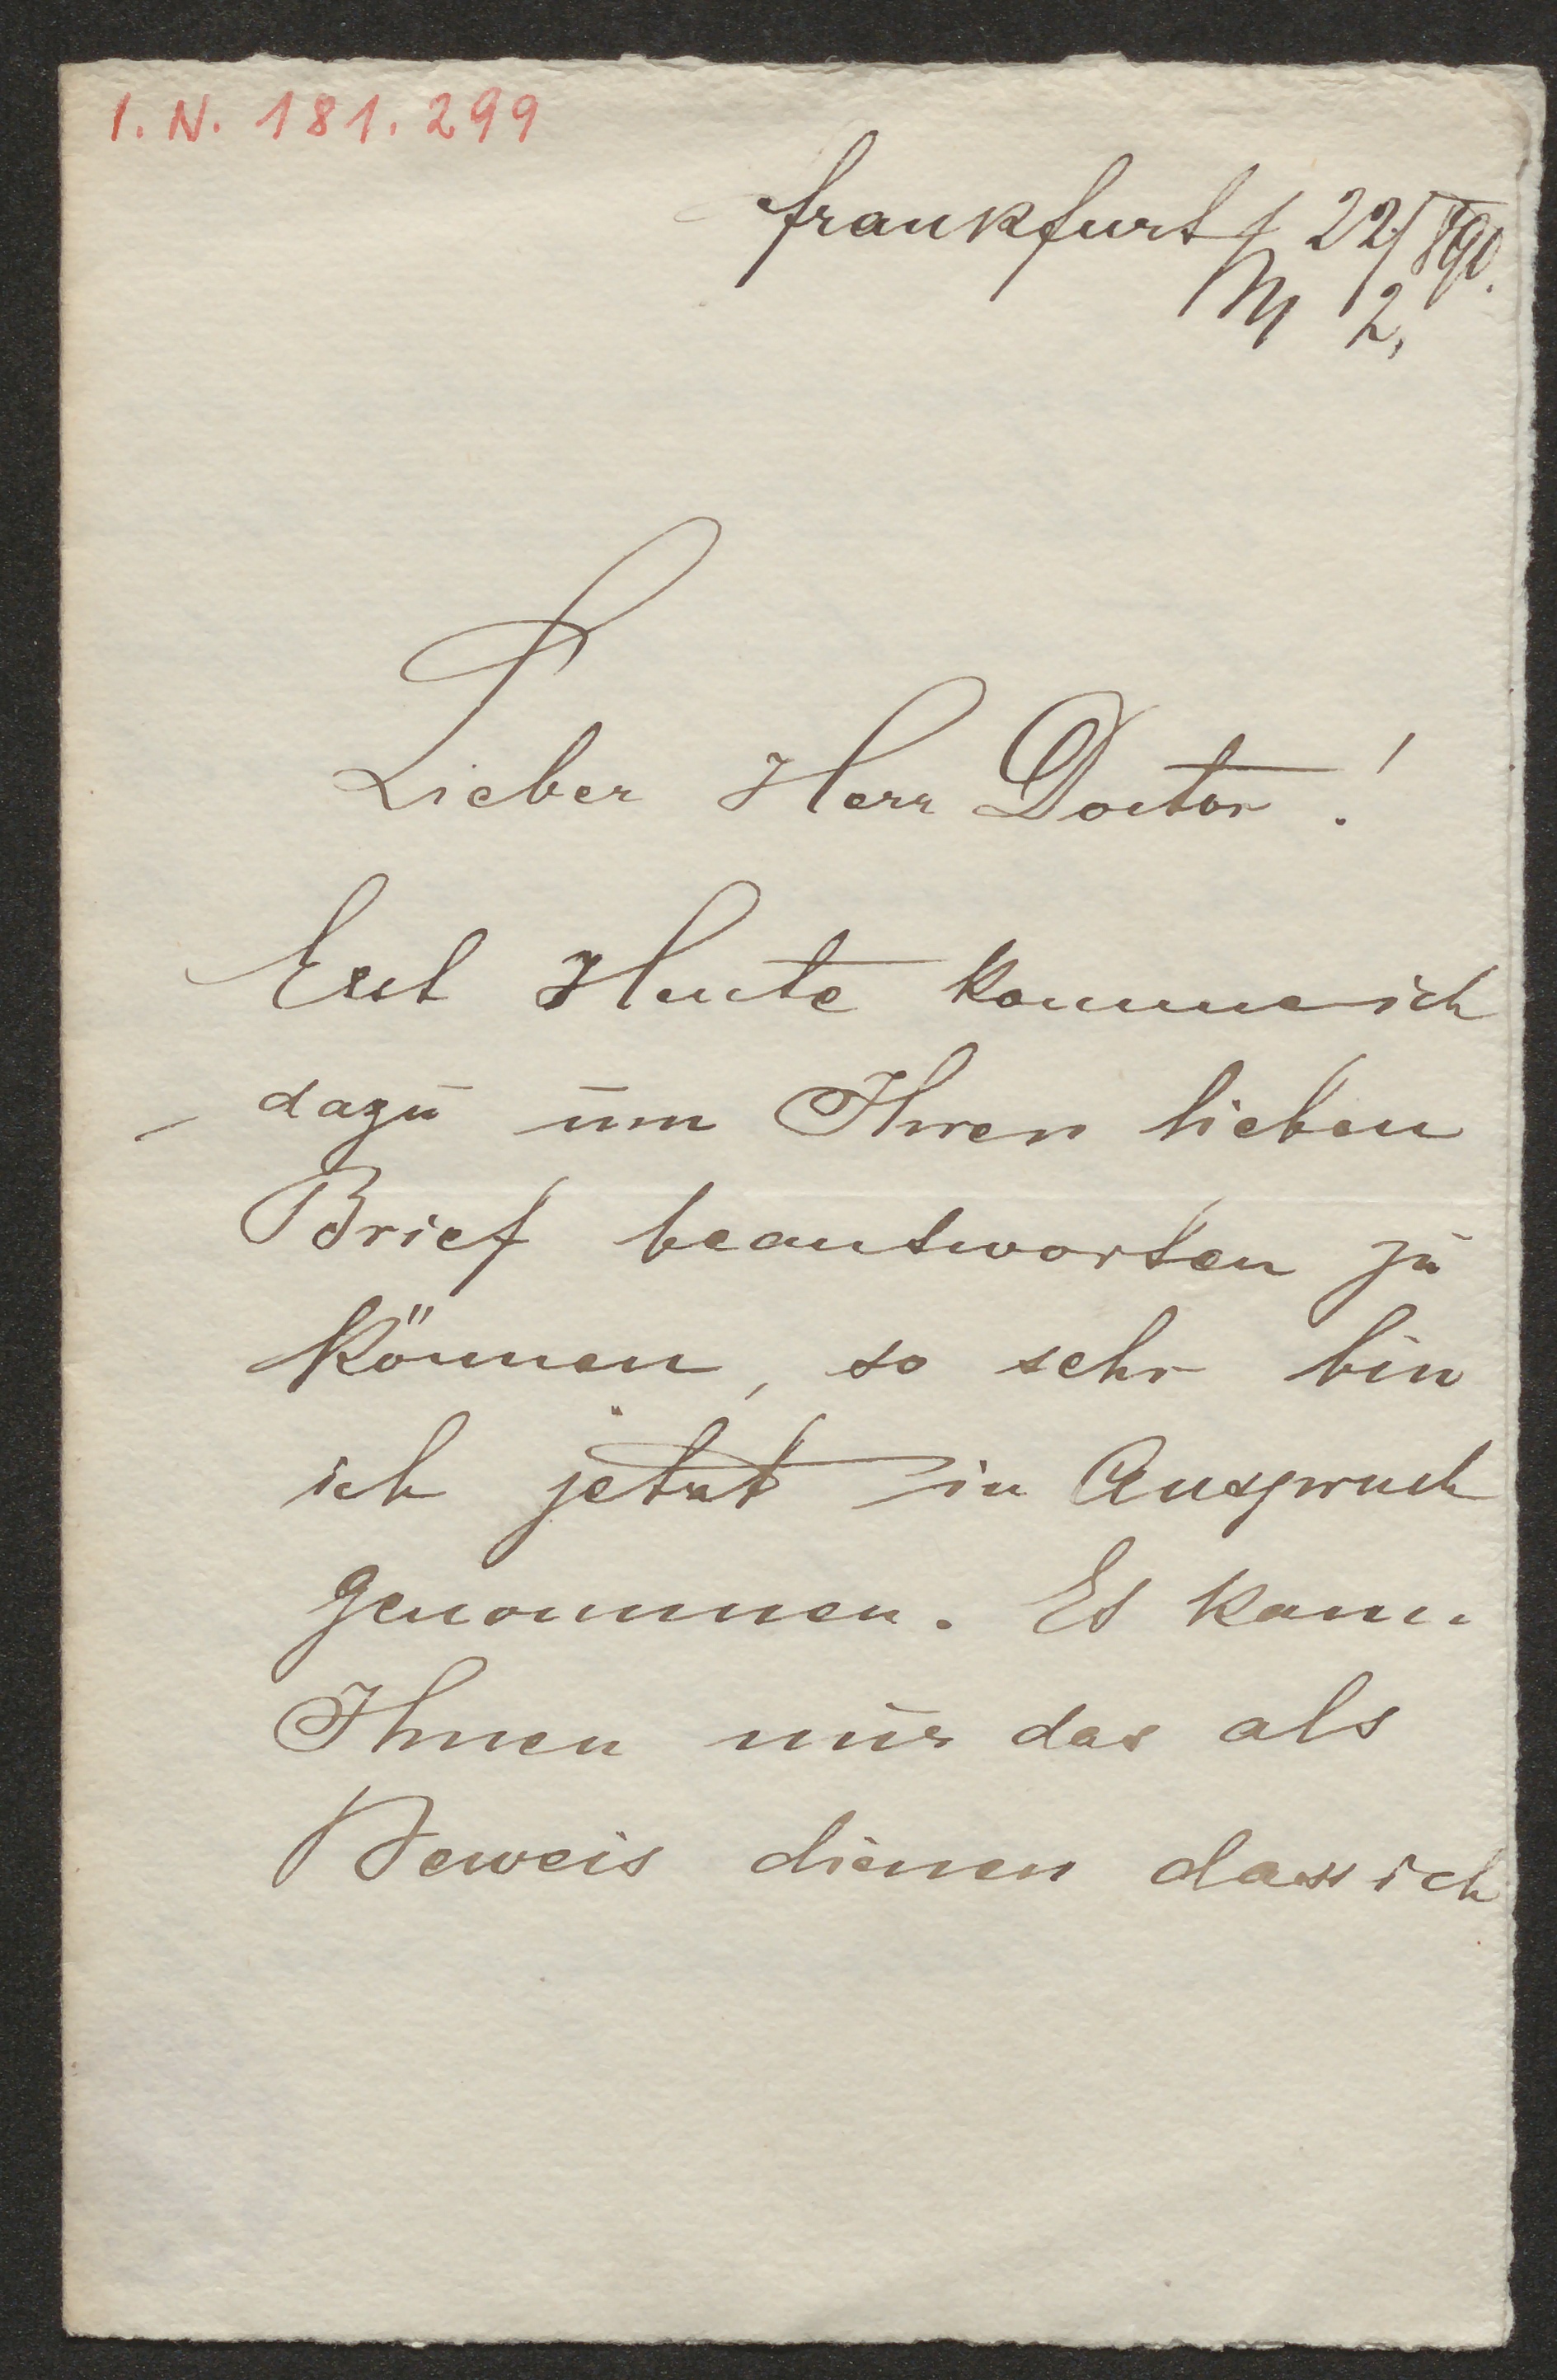 I. N. 181. 299
Frankfurt / 22/890.
M 2,
Lieber Herr Doctor!
Erst Heute komme ich
dazu um Ihren lieben
Brief beantworten zu
können, so sehr bin
ich jetzt in Anspruch
genommen. Es kann
Ihnen nur das als
Beweis dienen dass ich